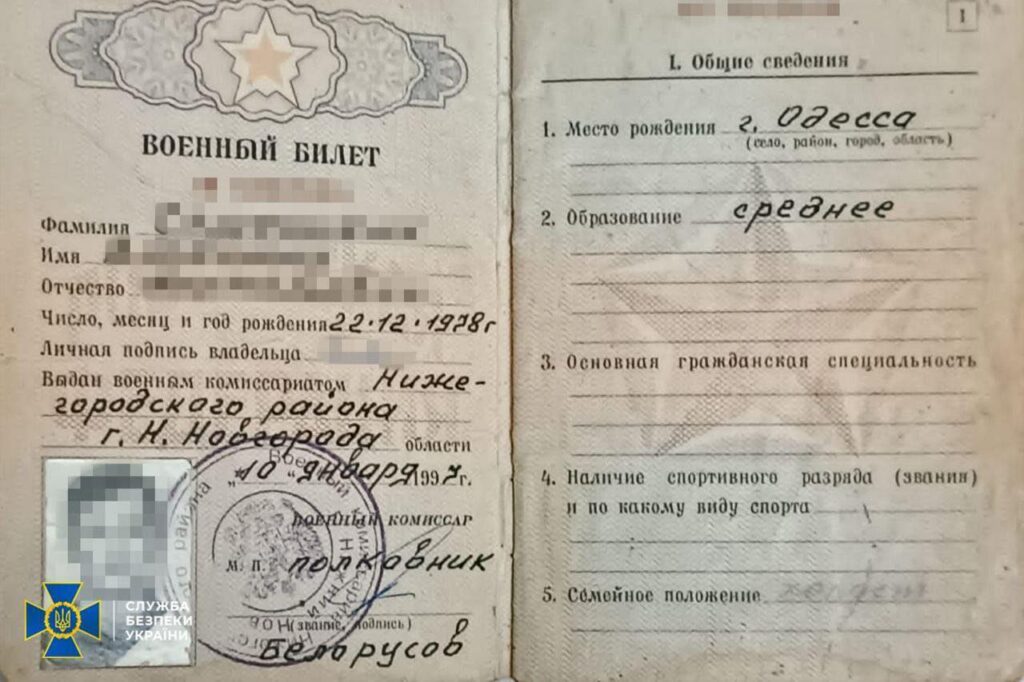 ВОЕННЫЙ БИЛЕТ
Фамилия
Имя
Отчество
Число, месяц и год рождения 22.12.1978г
Личная подпись владельца
Выдан военным комиссариатом Ниже-
городского района
г. Н. Новгорода области
"10" января 1997г.
ВОЕННЫЙ КОМИССАР
М. П. полковник
(звание, подпись)
Беларусов
СЛУЖБА
БЕЗПЕКИ
УКРАЇНИ
1
I. Общие сведения
1. Место рождения г. Одесса
(село, район, город, область)
2. Образование среднее
3. Основная гражданская специальность
4. Наличие спортивного разряда (звания)
и по какому виду спорта
5. Семейное положение